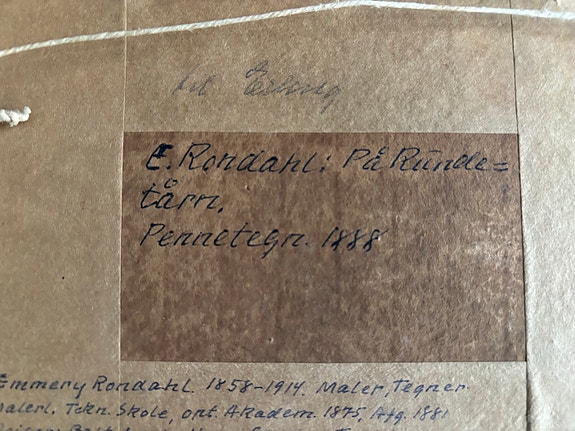 til Erling
E. Rondahl: På Runde=
tårn.
Pennetegn. 1888
Emmery Rondahl. 1858-1914. Maler, Tegner.
Malerl. Tekn. Skole, opt. Akadem. 1875, Afg. 1881